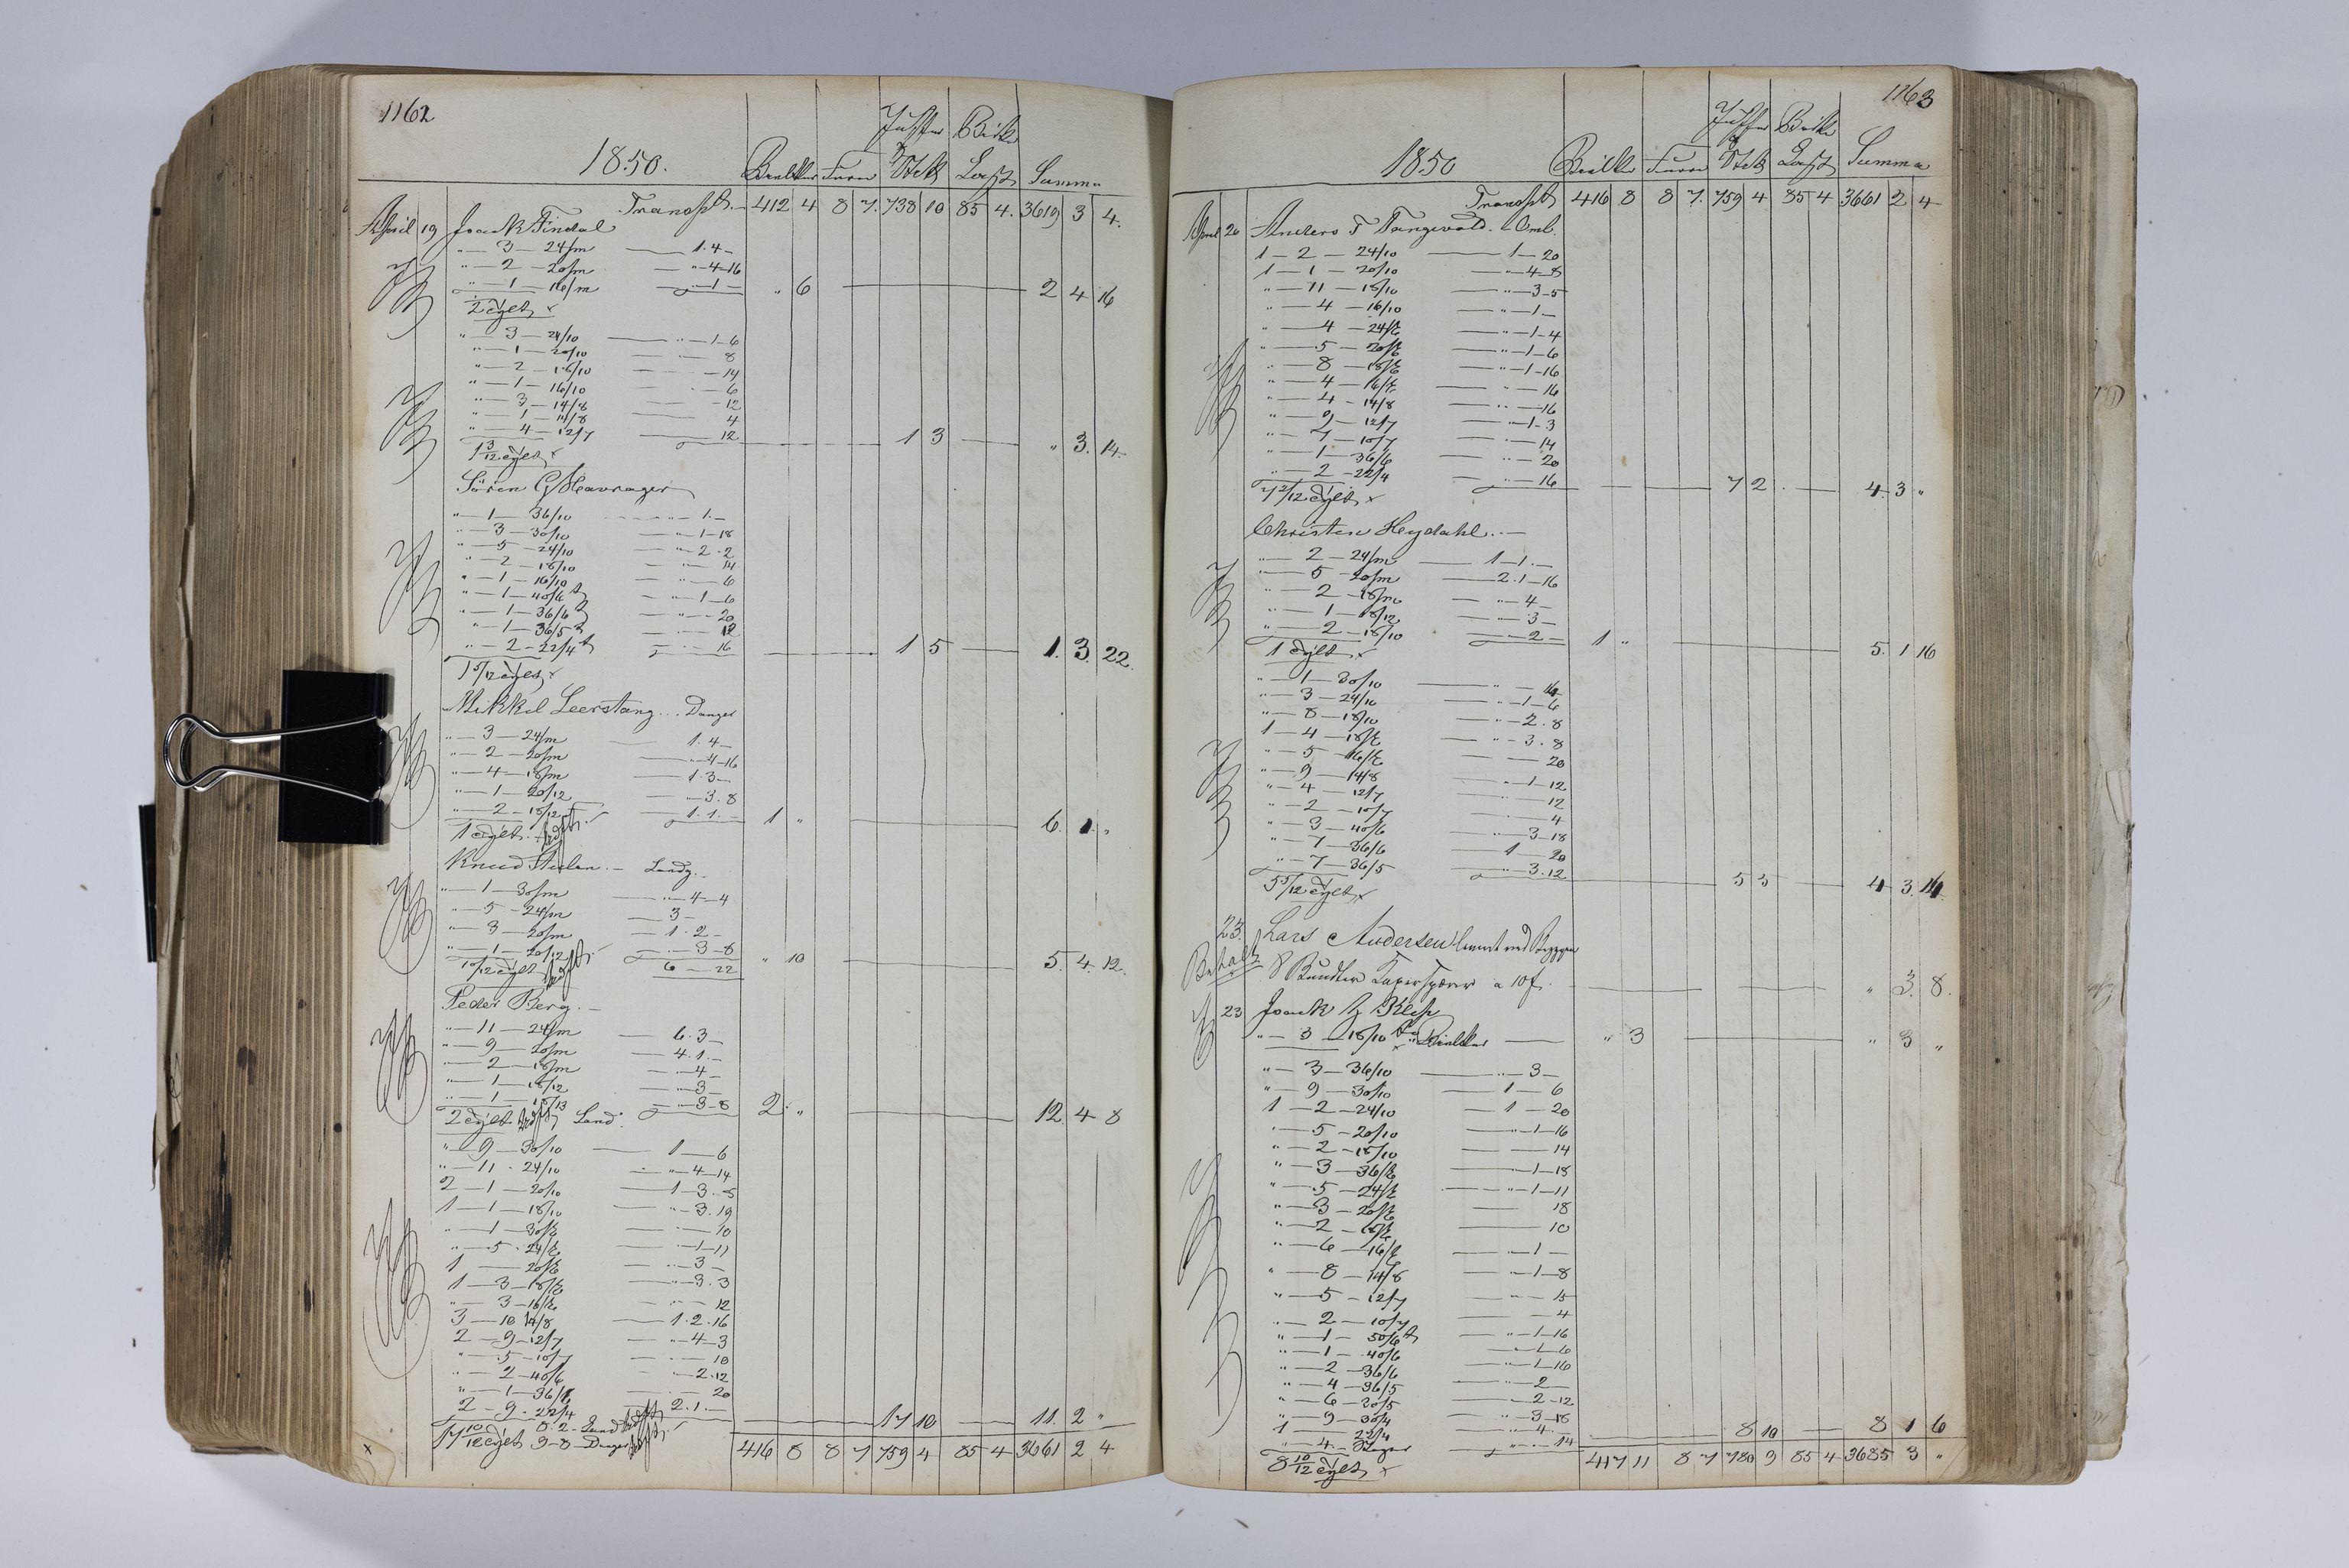 1162
1850.
Bielker Furu Juffer Stk Birke Last Summa
Transpt. 412 4 8 7. 738 10 85 4. 3619 3 4.
April 19 Joack Findal
" 3 — 24/m — 1. 4 —
" 2 — 20/m — " 4 — 16
" 1 — 16/m — " 1 — " 6 — 2 4 16
2 Cylt x
" 3 — 24/10 — " 1 — 6
" 1 — 20/10 — 8
" 2 — 18/10 — 14
" 1 — 16/10 — 6
" 3 — 14/8 — 12
" 1 — 14/8 — 4
" 4 — 12/7 — 12 — 1 3 — " 3. 14.
1 3/12 Cylt x
Sören G Havrager
" 1 — 36/10 — " 1. —
" 3 — 30/10 — " 1 — 18
" 5 — 24/10 — " 2. 2
" 2 — 18/10 — 14
" 1 — 16/10 — " 6
" 1 — 40/6 — " 1 — 6
" 1 — 36/6 — " 20
" 1 — 36/5 — 12
" 2 — 22/4 — 16 — 1 5 — 1. 3. 22.
1 5/12 Cylt x
Mikkel Leerstang . . . Danger
" 3 — 24/m — 1. 4 —
" 2 — 20/m — " 4 — 16
" 4 — 18/m — 1. 3 —
" 1 — 20/12 — " 3. 8
" 2 — 18/12 — 1. 1. — 1 " — 6. 1. "
1 Cylt.
Knud — Landg.
" 1 — 30/m — " 4 — 4
" 5 — 24/m — 3 —
" 3 — 20/m — 1. 2 —
" 1 — 20/12 — 3 — 8
10/12 Cylt 6 — 22 " 10 — 5. 4. 12.
Peder Berg. —
" 11 — 24/m — 6. 3 —
" 9 — 20/m — 4. 1. —
" 2 — 18/m — " 4 —
" 1 — 18/12 — " 3 —
" 1 — 18/13 — " 3 — 8 2. " — 12. 4 8
2 Cylt Land.
" 9 — 30/10 — 1 — 6
" 11 — 24/10 — " 4 — 14
2 — 1 — 20/10 — 1 — 3. 8
1 — 1 — 18/10 — " 3. 19
" 1 — 30/8 — 10
" 5 — 24/8 — " 1 — 11
1 — 20/8 — " 3 —
1 — 3 — 18/8 — " 3. 3
" 3 — 16/8 — 12
3 — 10 14/8 — 1. 2. 16
2 — 9 — 12/7 — " 4 — 3
" 5 — 10/7 — 10
" 2 — 40/6 — " 2. 12
" 1 — 36/6 — 20
2 — 9 — 22/4 — 2. 1. — 17 10 — 11. 2 "
17 10/12 Cylt 8. 2 Land
9 — 8 — Danger
416 8 8 7 759 4 85 4 3661 2 4
1163
1850
Bielker Furu Juffer Stk Birke Last Summa
Transpt 416 8 8 7. 759 4 85 4 3661 2 4
April 20 Anders T Tangevald. Omb.
1 — 2 — 24/10 — 1 — 20
1 — 1 — 20/10 — " 4 — 8
" 11 — 18/10 — " 3 — 5
" 4 — 16/10 — " 1 —
" 4 — 24/8 — " 1 — 4
" 5 — 20/8 — " 1 — 6
" 8 — 18/8 — " 1 — 16
" 4 — 16/8 — " 16
" 4 — 14/8 — " 16
" 9 — 12/7 — " 1 — 3
" 7 — 10/7 — 14
" 1 — 36/6 — " 20
" 2 — 22/4 — " 16 — 7 2 — 4 3 "
7 2/12 Cylt x
Christen Heydahl. —
" 2 — 24/m — 1 — 1. —
" 5 — 20/m — 2. 1 — 16
" 2 — 18/m — " 4 —
" 1 — 18/12 — " 3 —
" 2 — 18/10 — " 2 — 1 " — 5. 1 16
1 Cylt x
" 1 — 30/10 — " 14
" 3 — 24/10 — " 1 — 6
" 8 — 18/10 — " 2. 8
1 — 4 — 18/8 — " 3. 8
" 5 — 16/8 — 20
" 9 — 14/8 — " 1 — 12
" 4 — 12/7 — 12
" 2 — 10/7 — 4
" 3 — 40/6 — " 3 — 18
" 7 — 36/6 — 1 — 20
" 7 — 36/5 — " 3. 12 — 5 5 — 4 3. 14.
5 5/12 Cylt x
23. Lars Andersen
Betalt 8 Bundter a 10 f. — " 3. 8.
23 Joack Klep
" 3 — 18/10 Bielker — " 3 — " 3 "
" 3 — 36/10 — " 3 —
" 9 — 30/10 — 1 — 6
1 — 2 — 24/10 — 1 — 20
" 5 — 20/10 — " 1 — 16
" 2 — 18/10 — 14
" 3 — 36/8 — " 1 — 18
" 5 — 24/8 — " 1 — 11
" 3 — 20/8 — 18
" 2 — 18/8 — 10
" 6 — 16/8 — " 1 —
" 8 — 14/8 — " 1 — 8
" 5 — 12/7 — " 15
" 2 — 10/7 — 4
" 1 — 50/6 — " 1 — 16
" 1 — 40/6 — 1 — 6
" 2 — 36/6 — " 1 — 16
" 4 — 36/5 — " 2 —
" 6 — 30/5 — 2 — 12
" 9 — 30/4 — " 3 — 18
1 — 22/4 — " 4 —
" 4 — — " 14 — 8 10 — 8 1 6
8 10/12 Cylt x
417 11 8 7 780 9 85 4 3685 3 "